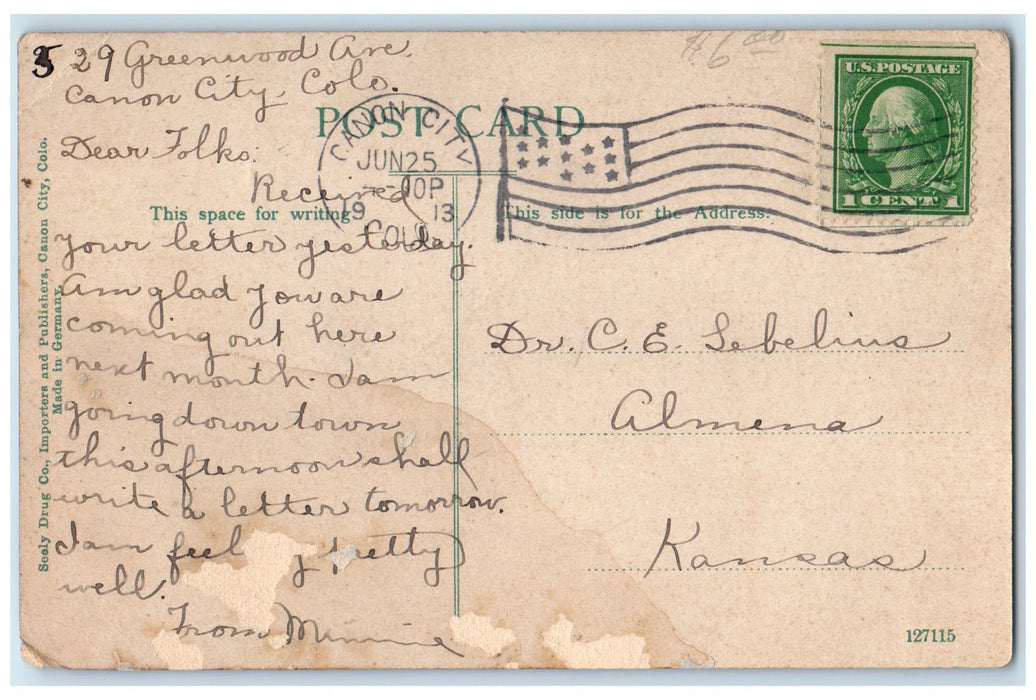 529 Greenwood Ave.
Canon City, Colo.
$6 00
POST CARD
U.S. POSTAGE
1 CENT 1
CANON CITY
JUN 25
-00P
1913
COLO.
Dear Folks:
Received
This space for writing
This side is for the Address.
your letter yesterday.
Am glad you are
coming out here
next month. I am
going down town
this afternoon shall
write a letter tomorrow.
I am feel g pretty
well.
From Minnie
Dr. C. E. Sebelius
Almena
Kansas
Seely Drug Co., Importers and Publishers, Canon City, Colo.
Made in Germany.
127115